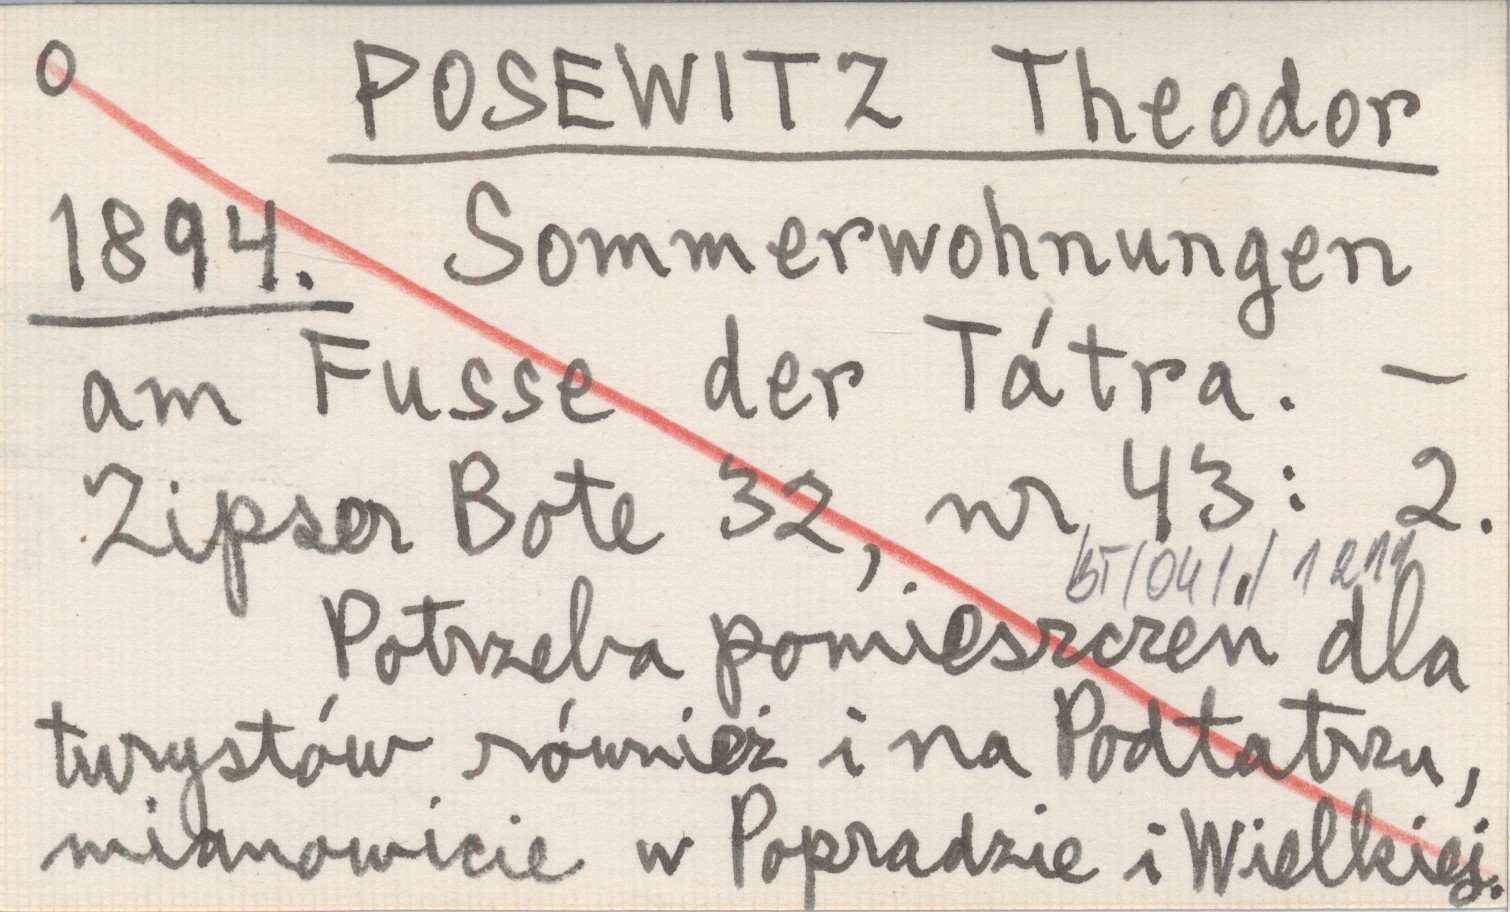 O POSEWITZ Theodor
1894. Sommerwohnungen
am Fusse der Tátra. –
Zipser Bote 32, nr 43: 2.
Potrzeba pomieszczeń dla
turystów również i na Podtatrzu,
mianowicie w Popradzie i Wielkiej.